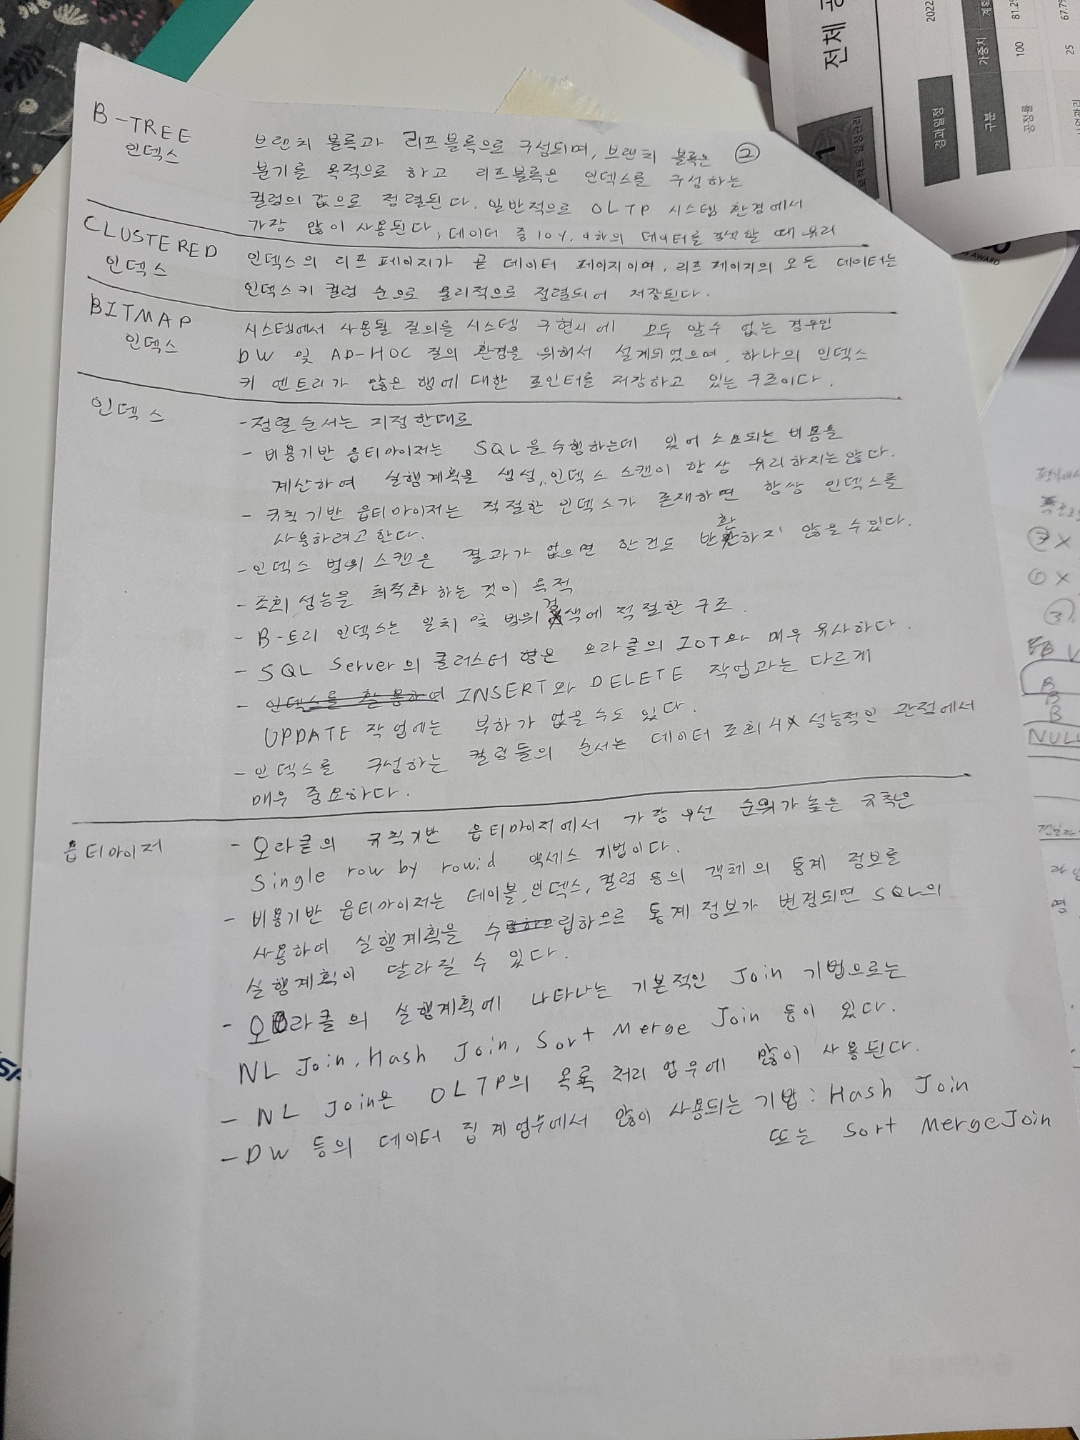 B-TREE
인덱스
브랜치 블록과 리프블록으로 구성되며, 브랜치 블록은 ②
분기를 목적으로 하고 리프블록은 인덱스를 구성하는
컬럼의 값으로 정렬된다. 일반적으로 OLTP 시스템 환경에서
가장 많이 사용된다, 데이터 중 10% 이하의 데이터를 검색할 때 유리
CLUSTERED
인덱스
인덱스의 리프 페이지가 곧 데이터 페이지이며, 리프 페이지의 모든 데이터는
인덱스 키 컬럼 순으로 물리적으로 정렬되어 저장된다.
BITMAP
인덱스
시스템에서 사용될 질의를 시스템 구현시에 모두 알수 없는 경우인
DW 및 AD-HOC 질의 환경을 위해서 설계되었으며, 하나의 인덱스
키 엔트리가 많은 행에 대한 포인터를 저장하고 있는 구조이다.
인덱스
- 정렬순서는 지정한대로
- 비용기반 옵티마이저는 SQL을 수행하는데 있어 소요되는 비용을
계산하여 실행계획을 생성, 인덱스 스캔이 항상 유리하지는 않다.
- 규칙기반 옵티마이저는 적절한 인덱스가 존재하면 항상 인덱스를
사용하려고 한다.
- 인덱스 범위 스캔은 결과가 없으면 한건도 반환하지 않을 수 있다.
- 조회 성능을 최적화 하는 것이 목적
- B-트리 인덱스는 일치 및 범위 검색에 적절한 구조.
- SQL Server의 클러스터 형은 오라클의 IOT와 매우 유사하다.
- 인덱스를 활용하여 INSERT와 DELETE 작업과는 다르게
UPDATE 작업에는 부하가 없을 수도 있다.
- 인덱스를 구성하는 컬럼들의 순서는 데이터 조회시 성능적인 관점에서
매우 중요하다.
옵티마이저
- 오라클의 규칙기반 옵티마이저에서 가장 우선 순위가 높은 규칙은
Single row by rowid 액세스 기법이다.
- 비용기반 옵티마이저는 테이블, 인덱스, 컬럼 등의 객체의 통계 정보를
사용하여 실행계획을 수립하므로 통계 정보가 변경되면 SQL의
실행계획이 달라질 수 있다.
- 오라클의 실행계획에 나타나는 기본적인 Join 기법으로는
NL Join, Hash Join, Sort Merge Join 등이 있다.
- NL Join은 OLTP의 목록 처리 업무에 많이 사용된다.
- DW 등의 데이터 집계업무에서 많이 사용되는 기법 : Hash Join
또는 Sort Merge Join
전체 공
2022
결과일정
구분
가중치
계획
공정률
100
81.2
25
67.7
AWARD
NULL
B
B
B